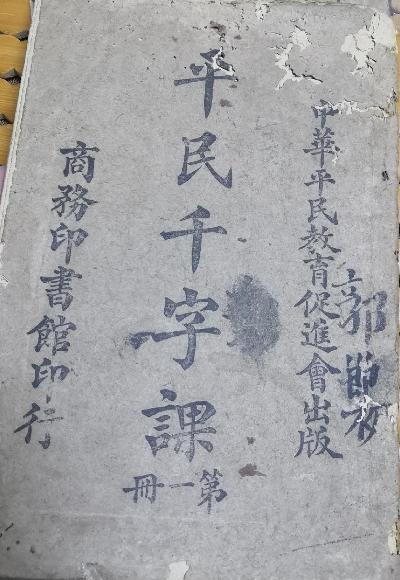 中華平民教育促進會出版
平民千字課
第一冊
商務印書館印行